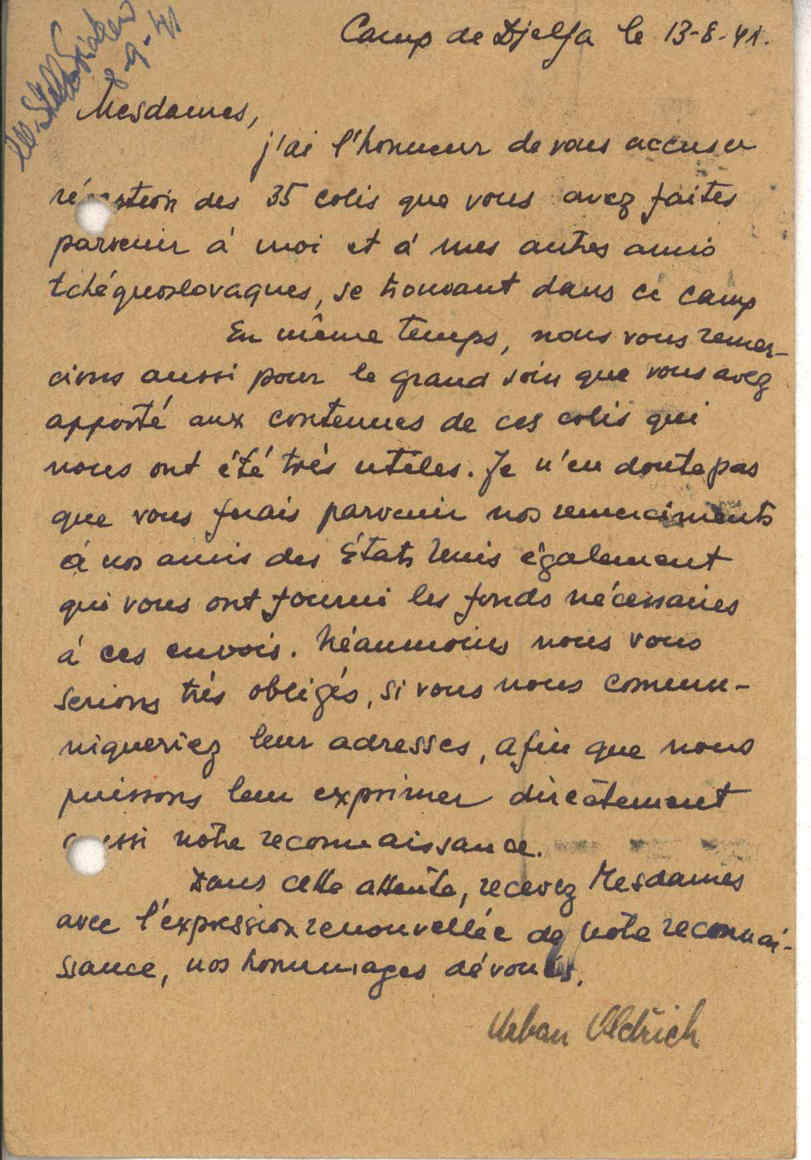 8-9-41
Camp de Djelfa le 13-8-41.
Mesdames,
j'ai l'honneur de vous accuser
des 35 colis que vous avez faites
parvenir à moi et à mes autres amis
tchéquoslovaques, se trouvant dans ce camp
En même temps, nous vous remer-
cions aussi pour le grand soin que vous avez
apporté aux contenues de ces colis qui
nous ont été très utiles. Je n'en doute pas
que vous ferais parvenir nos remerciments
à nos amis des États Unis également
qui vous ont fourni les fonds nécessaires
à ces envois. Néaumoins nous vous
serions très obligés, si vous nous commu-
niqueriez leur adresses, afin que nous
puissons leur exprimer directement
aussi notre reconnaissance.
Dans cette attente, recevez Mesdames
avec l'expression renouvellée de notre reconnai-
ssance, nos hommages dévoués.
Urban Oldřich